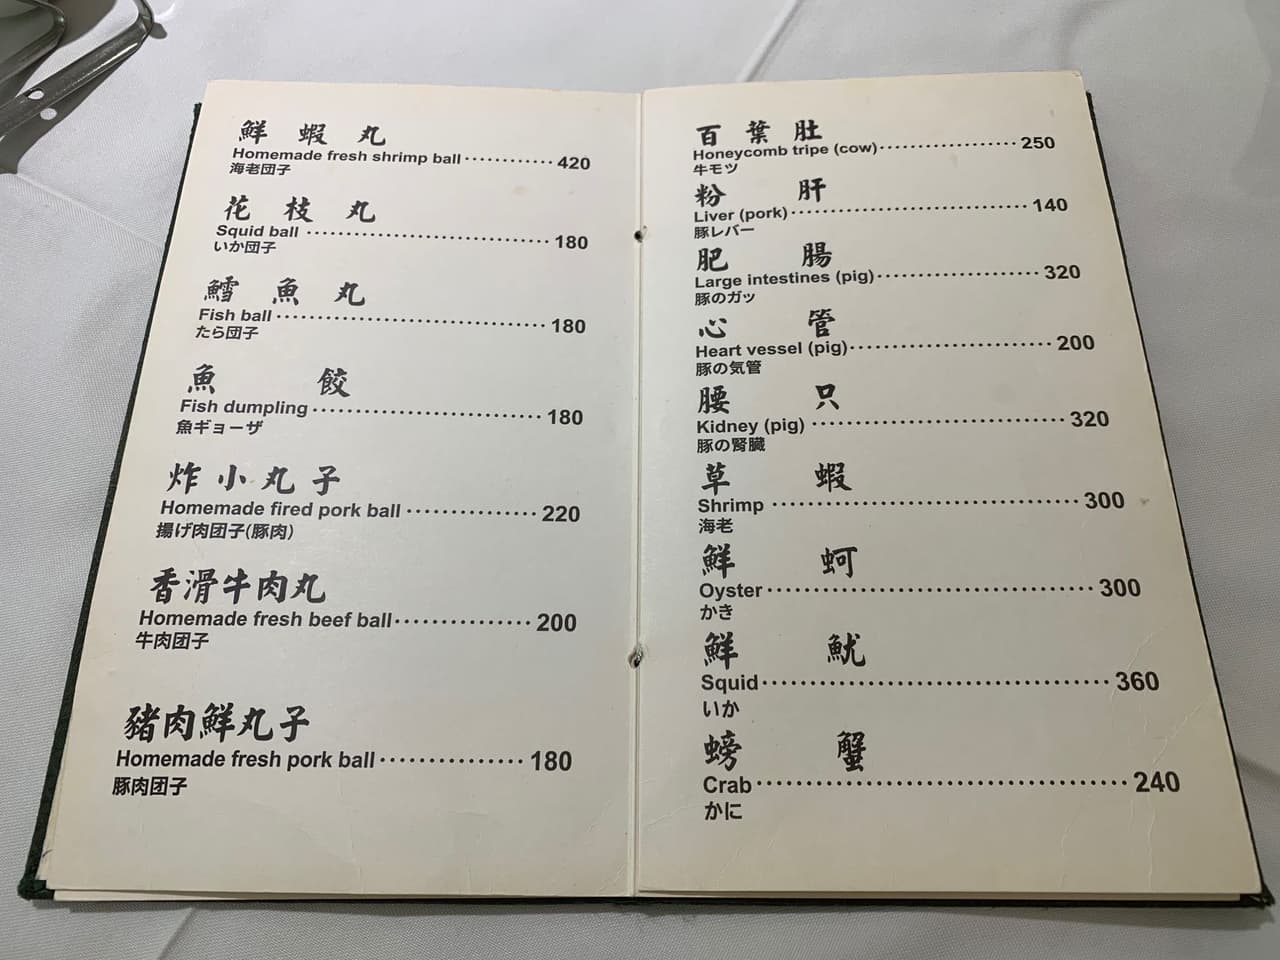 鮮蝦丸
Homemade fresh shrimp ball············420
海老団子
花枝丸
Squid ball ································180
いか団子
鱈魚丸
Fish ball···································180
たら団子
魚餃
Fish dumpling·····························180
魚ギョーザ
炸小丸子
Homemade fired pork ball ···············220
揚げ肉団子(豚肉)
香滑牛肉丸
Homemade fresh beef ball···············200
牛肉団子
豬肉鮮丸子
Homemade fresh pork ball···············180
豚肉団子
百葉肚
Honeycomb tripe (cow)··················250
牛モツ
粉肝
Liver (pork)·······························140
豚レバー
肥腸
Large intestines (pig)·····················320
豚のガッ
心管
Heart vessel (pig)·························200
豚の気管
腰只
Kidney (pig) ······························320
豚の腎臓
草蝦
Shrimp ····································300
海老
鮮蚵
Oyster·····································300
かき
鮮魷
Squid······································360
いか
螃蟹
Crab·······································240
かに